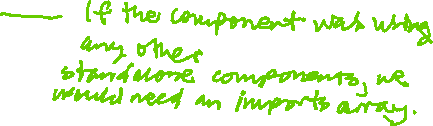 If the component was using
any other
standalone components, we
would need an imports array.